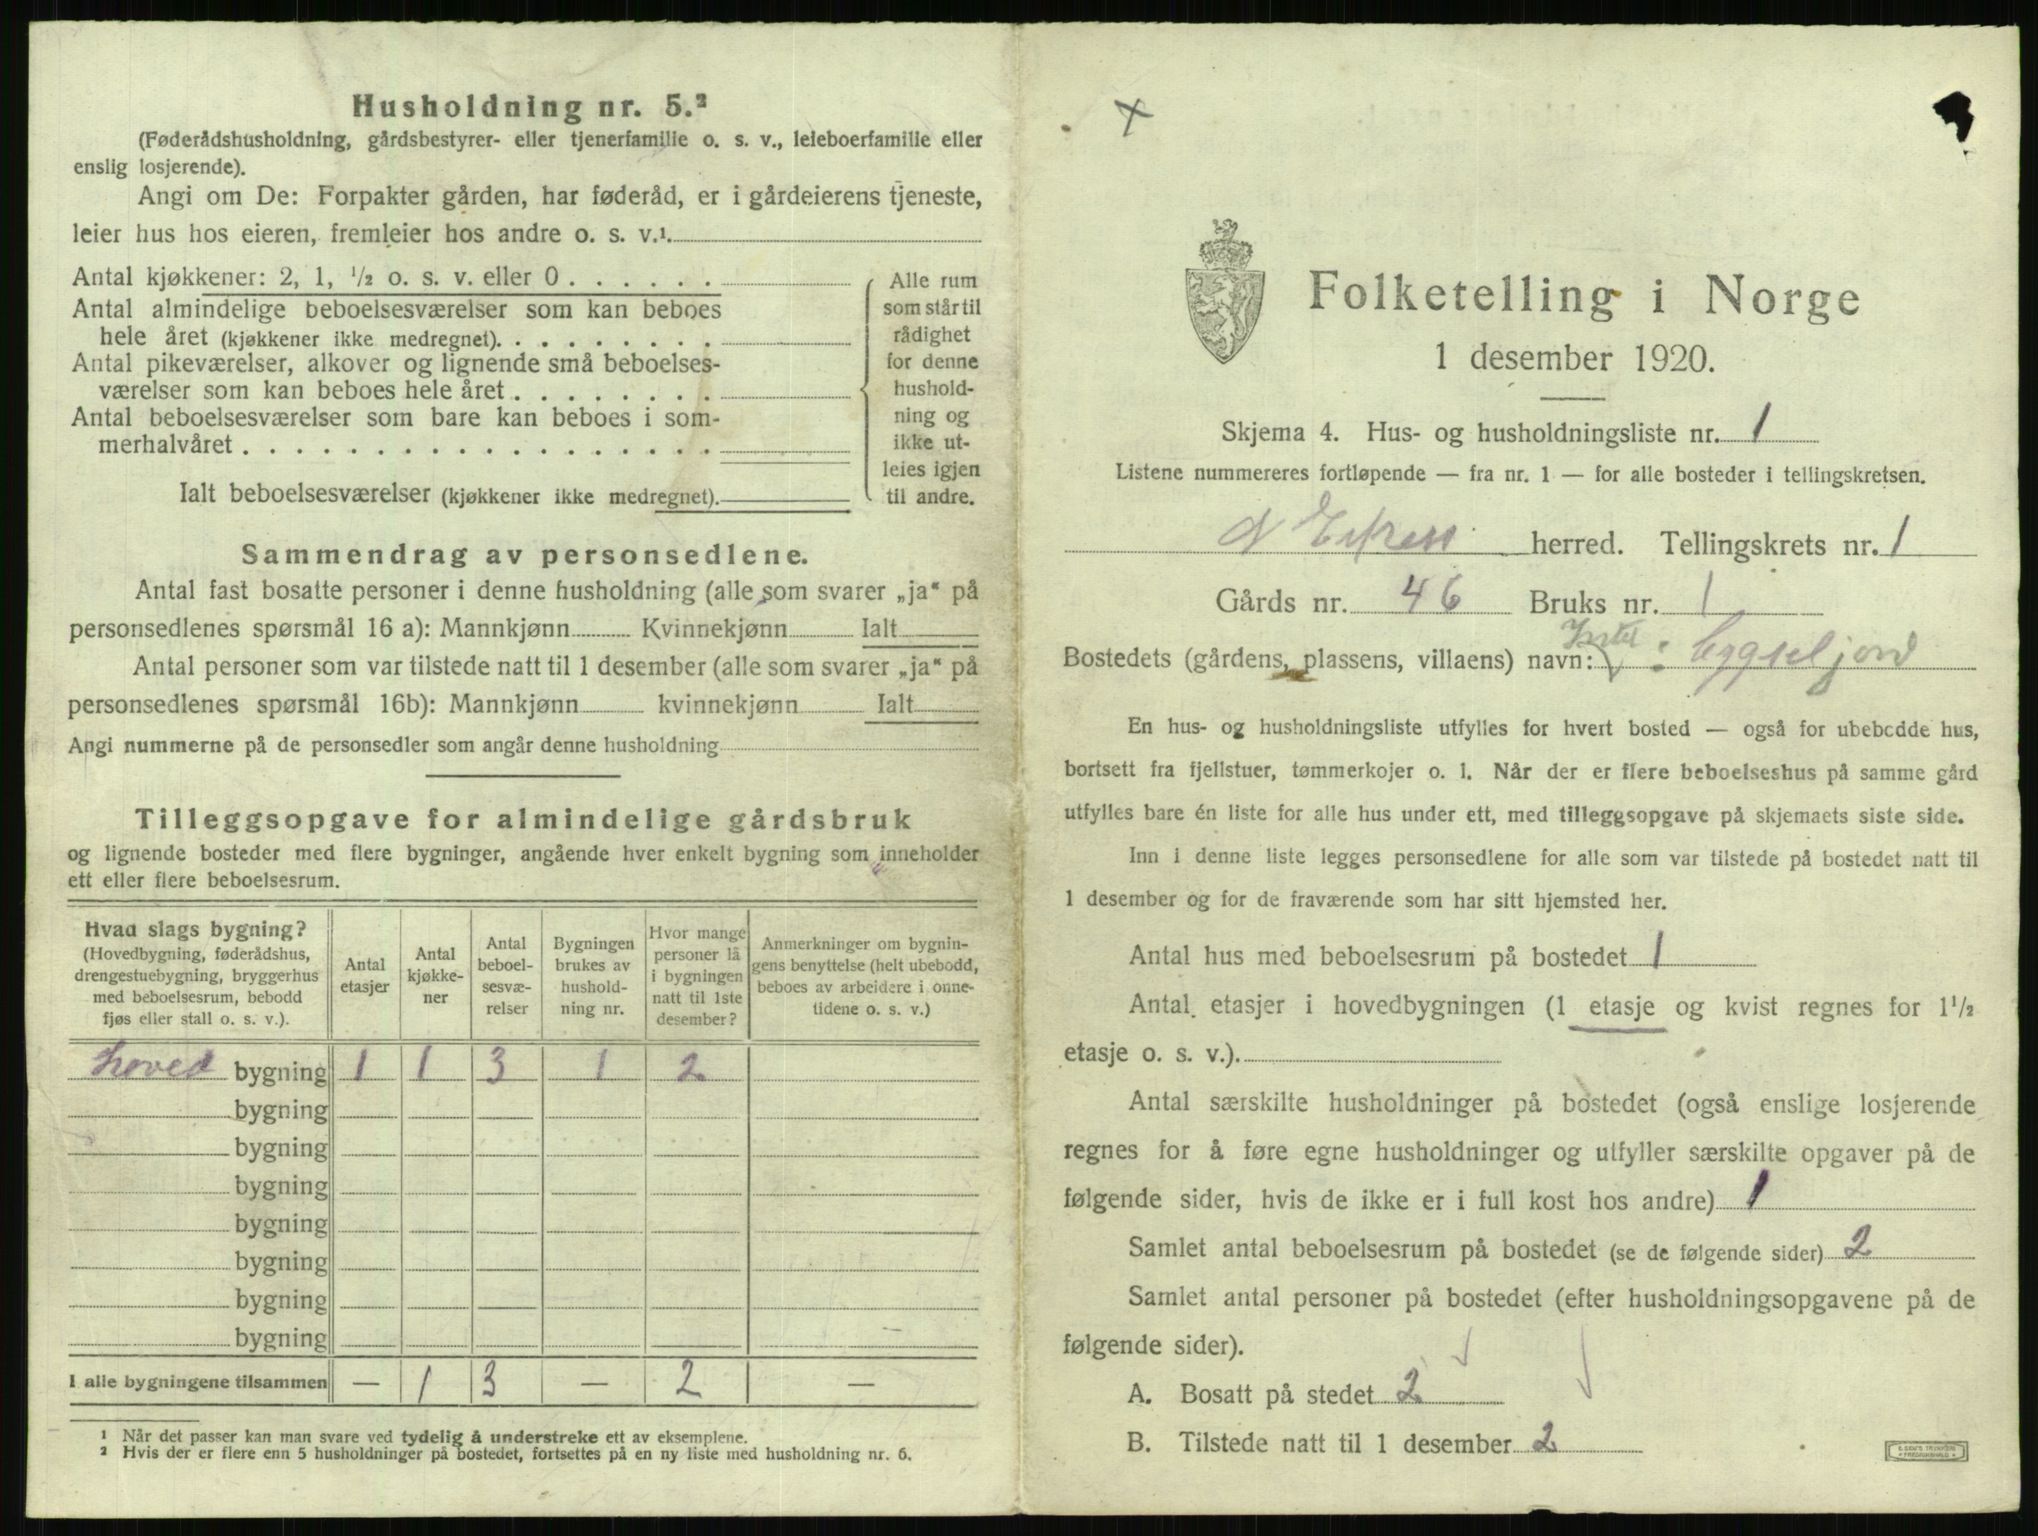 Husholdning nr. 5.²
(Føderådshusholdning, gårdsbestyrer- eller tjenerfamilie o. s. v., leieboerfamilie eller
enslig losjerende).
Angi om De: Forpakter gården, har føderåd, er i gårdeierens tjeneste,
leier hus hos eieren, fremleier hos andre o. s. v.¹
Antal kjøkkener: 2, 1, ½ o. s. v. eller 0
Antal almindelige beboelsesværelser som kan beboes
hele året (kjøkkener ikke medregnet).
Antal pikeværelser, alkover og lignende små beboelses-
værelser som kan beboes hele året
Antal beboelsesværelser som bare kan beboes i som-
merhalvåret
Ialt beboelsesværelser (kjøkkener ikke medregnet).
Alle rum
som står til
rådighet
for denne
hushold-
ning og
ikke ut-
leies igjen
til andre.
Sammendrag av personsedlene.
Antal fast bosatte personer i denne husholdning (alle som svarer „ja“ på
personsedlenes spørsmål 16 a): Mannkjønn Kvinnekjønn Ialt
Antal personer som var tilstede natt til 1 desember (alle som svarer „ja“ på
personsedlenes spørsmål 16b): Mannkjønn kvinnekjønn Ialt
Angi nummerne på de personsedler som angår denne husholdning
Tilleggsopgave for almindelige gårdsbruk
og lignende bosteder med flere bygninger, angående hver enkelt bygning som inneholder
ett eller flere beboelsesrum.
Hvad slags bygning?
(Hovedbygning, føderådshus,
drengestuebygning, bryggerhus
med beboelsesrum, bebodd
fjøs eller stall o. s. v.).
Antal
etasjer
Antal
kjøkke-
ner
Antal
beboel-
sesvæ-
relser
Bygningen
brukes av
hushold-
ning nr.
Hvor mange
personer lå
i bygningen
natt til 1ste
desember?
Anmerkninger om bygnin-
gens benyttelse (helt ubebodd,
beboes av arbeidere i onne-
tidene o. s. v.)
hoved bygning 1 1 3 1 2
bygning
bygning
bygning
bygning
bygning
bygning
bygning
I alle bygningene tilsammen — 1 3 — 2 —
¹ Når det passer kan man svare ved tydelig å understreke ett av eksemplene.
² Hvis der er flere enn 5 husholdninger på bostedet, fortsettes på en ny liste med husholdning nr. 6.
Folketelling i Norge
1 desember 1920.
Skjema 4. Hus- og husholdningsliste nr. 1
Listene nummereres fortløpende — fra nr. 1 — for alle bosteder i tellingskretsen.
herred. Tellingskrets nr. 1
Gårds nr. 46 Bruks nr. 1
Bostedets (gårdens, plassens, villaens) navn:
En hus- og husholdningsliste utfylles for hvert bosted — også for ubebodde hus,
bortsett fra fjellstuer, tømmerkojer o. l. Når der er flere beboelseshus på samme gård
utfylles bare én liste for alle hus under ett, med tilleggsopgave på skjemaets siste side.
Inn i denne liste legges personsedlene for alle som var tilstede på bostedet natt til
1 desember og for de fraværende som har sitt hjemsted her.
Antal hus med beboelsesrum på bostedet 1
Antal etasjer i hovedbygningen (1 etasje og kvist regnes for 1½
etasje o. s. v.).
Antal særskilte husholdninger på bostedet (også enslige losjerende
regnes for å føre egne husholdninger og utfyller særskilte opgaver på de
følgende sider, hvis de ikke er i full kost hos andre) 1
Samlet antal beboelsesrum på bostedet (se de følgende sider) 2
Samlet antal personer på bostedet (efter husholdningsopgavene på de
følgende sider).
A. Bosatt på stedet 2
B. Tilstede natt til 1 desember 2